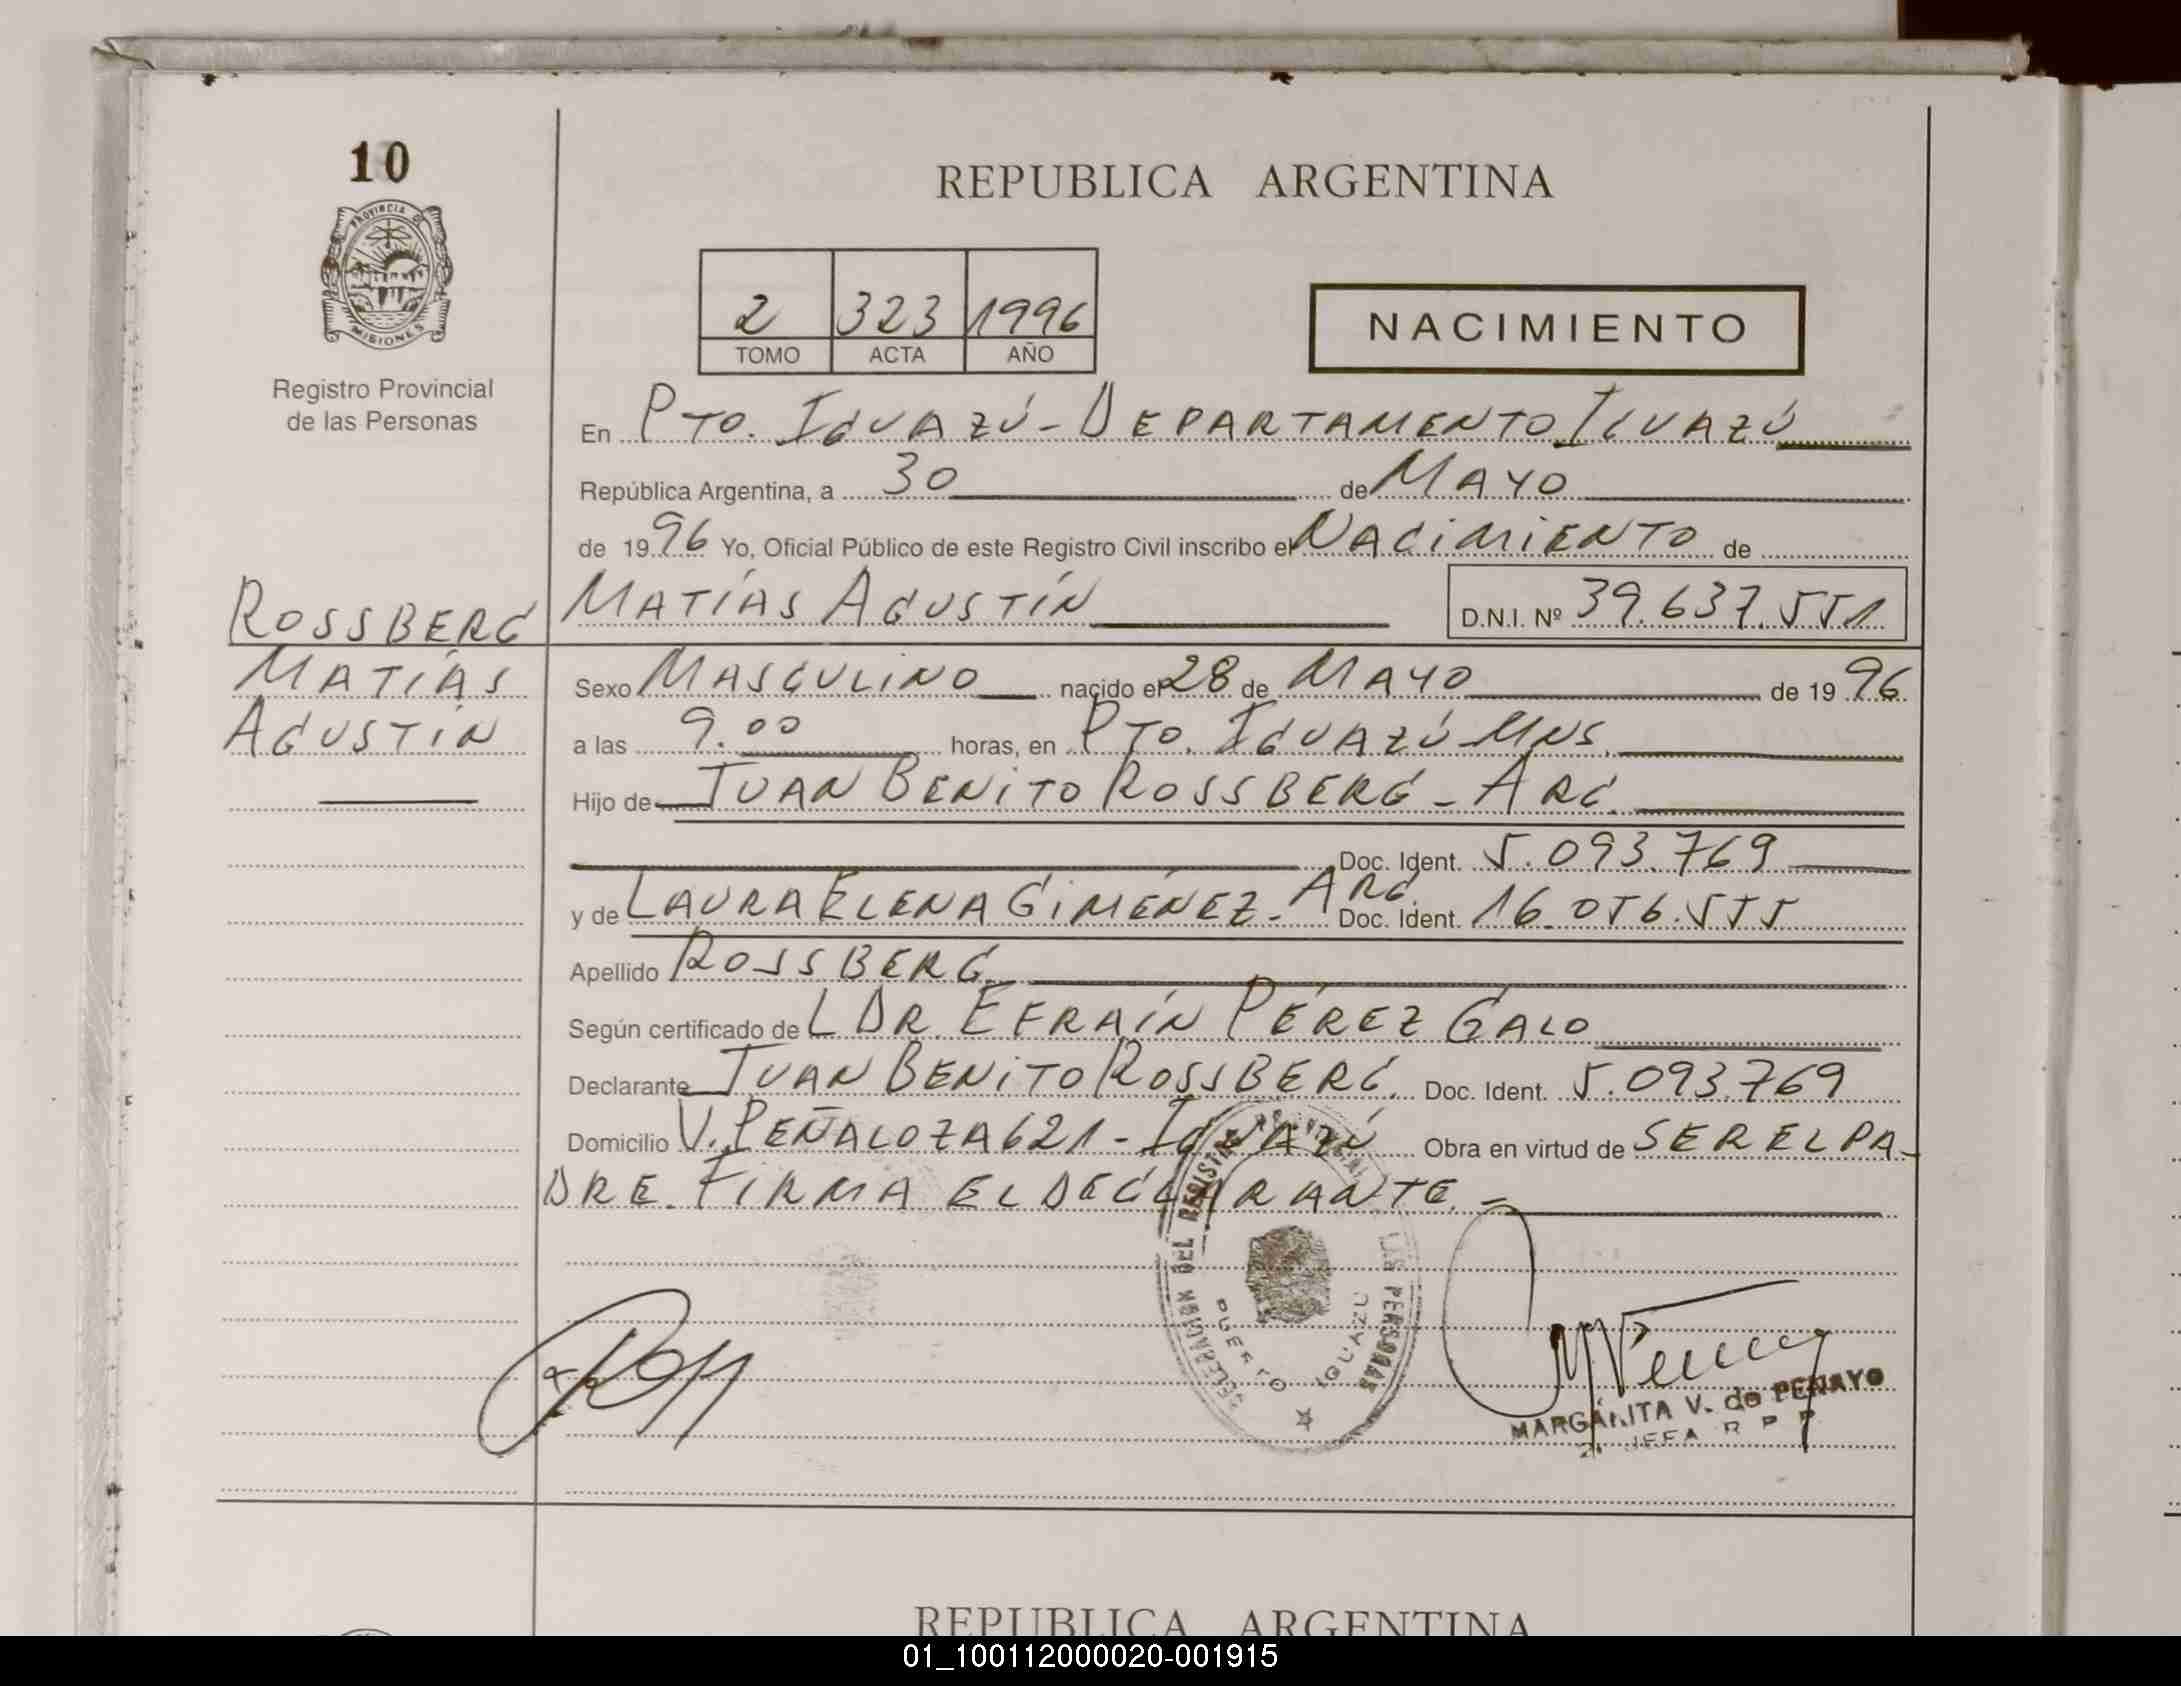 10
PROVINCIA DE
MISIONES
Registro Provincial
de las Personas
ROSSBERG
MATÍAS
AGUSTÍN
REPUBLICA ARGENTINA
2 323 1996
TOMO ACTA AÑO
NACIMIENTO
En PTO. IGUAZÚ - DEPARTAMENTO IGUAZÚ
República Argentina, a 30 de MAYO
de 1996 Yo, Oficial Público de este Registro Civil inscribo el NACIMIENTO de
MATÍAS AGUSTÍN D.N.I. Nº 39.637.551
Sexo MASCULINO nacido el 28 de MAYO de 1996
a las 9.00 horas, en PTO. IGUAZÚ - MNS.
Hijo de JUAN BENITO ROSSBERG - ARG.
Doc. Ident. 5.093.769
y de LAURA ELENA GIMÉNEZ - ARG. Doc. Ident. 16.056.555
Apellido ROSSBERG
Según certificado de L DR. EFRAÍN PÉREZ GALO
Declarante JUAN BENITO ROSSBERG. Doc. Ident. 5.093.769
Domicilio V. PEÑALOZA 621 - IGUAZÚ Obra en virtud de SER EL PA-
DRE. FIRMA EL DECLARANTE. -
DELEGACION DEL REGISTRO PROVINCIAL DE LAS PERSONAS
PUERTO IGUAZU
MARGARITA V. de PENAYO
JEFA R P P
REPUBLICA ARGENTINA
01_100112000020-001915